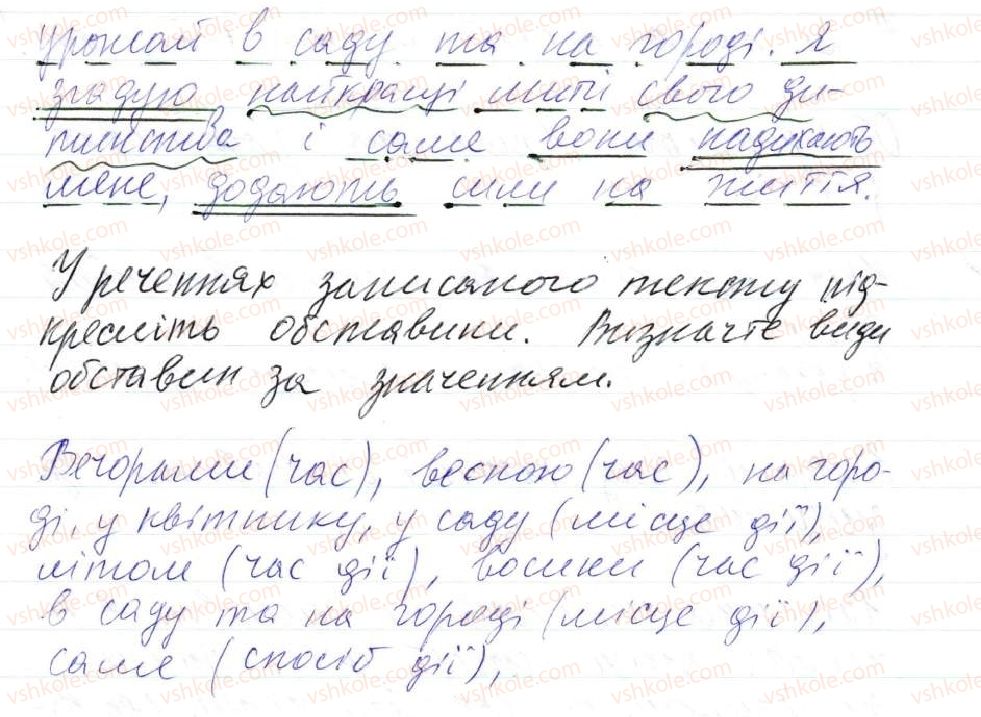 урожай в саду та на городі. Я
згадую найкращі миті свого ди-
тинства і саме вони надихають
мене, додають сили на життя.
У реченнях записаного тексту під-
кресліть обставини. Визначте види
обставин за значенням.
Вечорами (час), весною (час), на горо-
ді, у квітнику, у саду (місце дії),
літом (час дії), восени (час дії),
в саду та на городі (місце дії),
саме (спосіб дії),